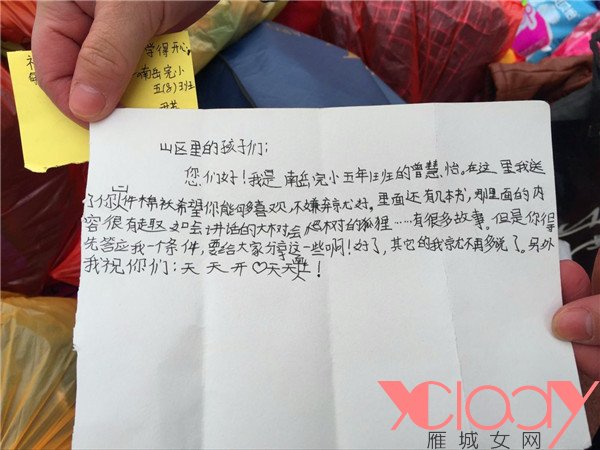 学得开心,
南岳完小
五(3)班
山区里的孩子们:
您们好!我是南岳完小五年13班的曾慧怡。在这里我送
了你一件棉袄希望你能够喜欢,不嫌弃就好。里面还有几本书,那里面的内
容很有趣 如会讲话的大树,会爬树的狐狸……有很多故事。但是你得
先答应我一个条件,要给大家分享这一些啊!好了,其它的我就不再多说了。另外
我祝你们:天天开♡天天
XCLady
雁城女网